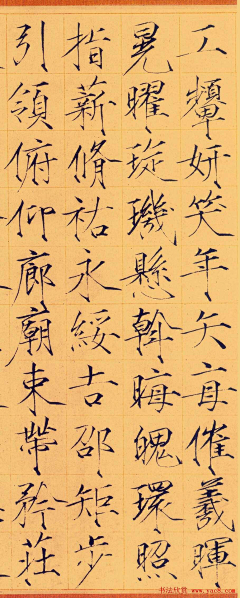 工顰妍笑年矢每催羲暉
晃曜琁璣懸斡晦魄環照
指薪脩祜永綏吉邵矩步
引領俯仰廊廟束帶矜莊
书法欣赏 www.yac8.com